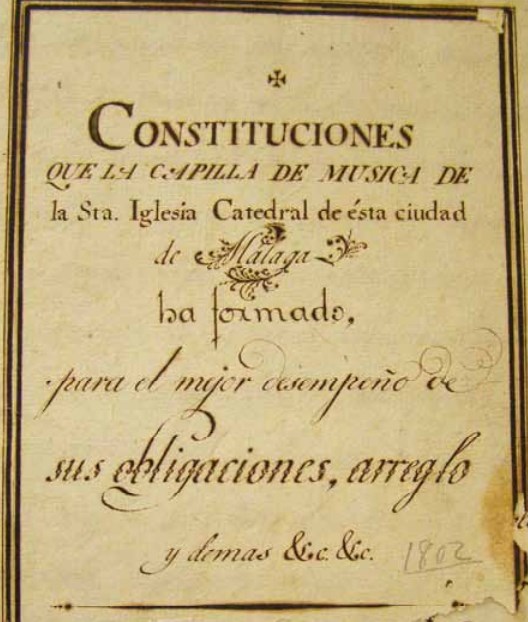 ✠
CONSTITUCIONES
QUE LA CAPILLA DE MUSICA DE
la Sta. Iglesia Catedral de ésta ciudad
de Málaga
ha formado,
para el mejor desempeño de
sus obligaciones, arreglo
y demas &c. &c.
1802